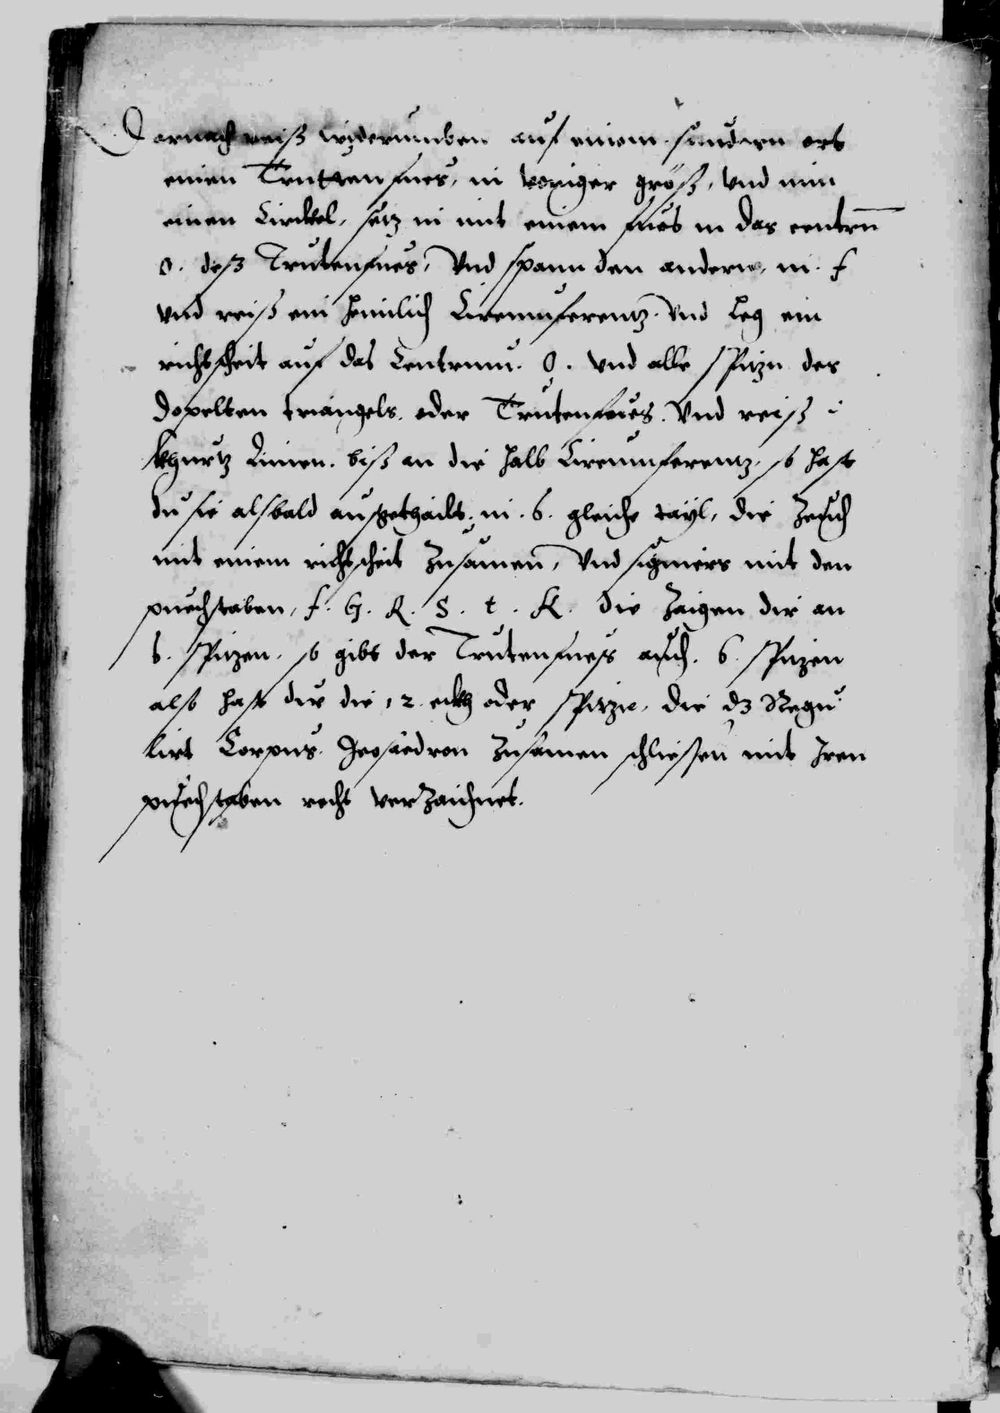 Darnach reiß widerumben auf einem sundern ort
einen Trutten fues, in voriger größ, vnd nim
einen Circkel, setz in mit einem fues in das centrū
o. deß Trutenfues, Vnd spann den andern, in. f
vnd reiß ein heimlich Circumferentz. Vnd leg ein
richtscheit auf das Centrum. o. vnd alle spitzn des
dopelten triangels. oder Trutenfues. Vnd reiß
khurtz Linien. biß an die halb Circumferentz, so hast
du sie alsbald außgethailt. in. 6. gleiche tayl, die Zeuch
mit einem richtscheit Zusamen, Vnd signiers mit den
puechstaben, f. G. R. S. t. K. die Zaigen dir an
6. Spitzen. so gibt der Trutenfuess auch. 6. Spitzen
also hast dir die 12. eckh oder Spitzn, die dz Regu
lirt Corpus. Jcosaedron Zusamen schliessen mit Jren
puechstaben recht verZaichnet.